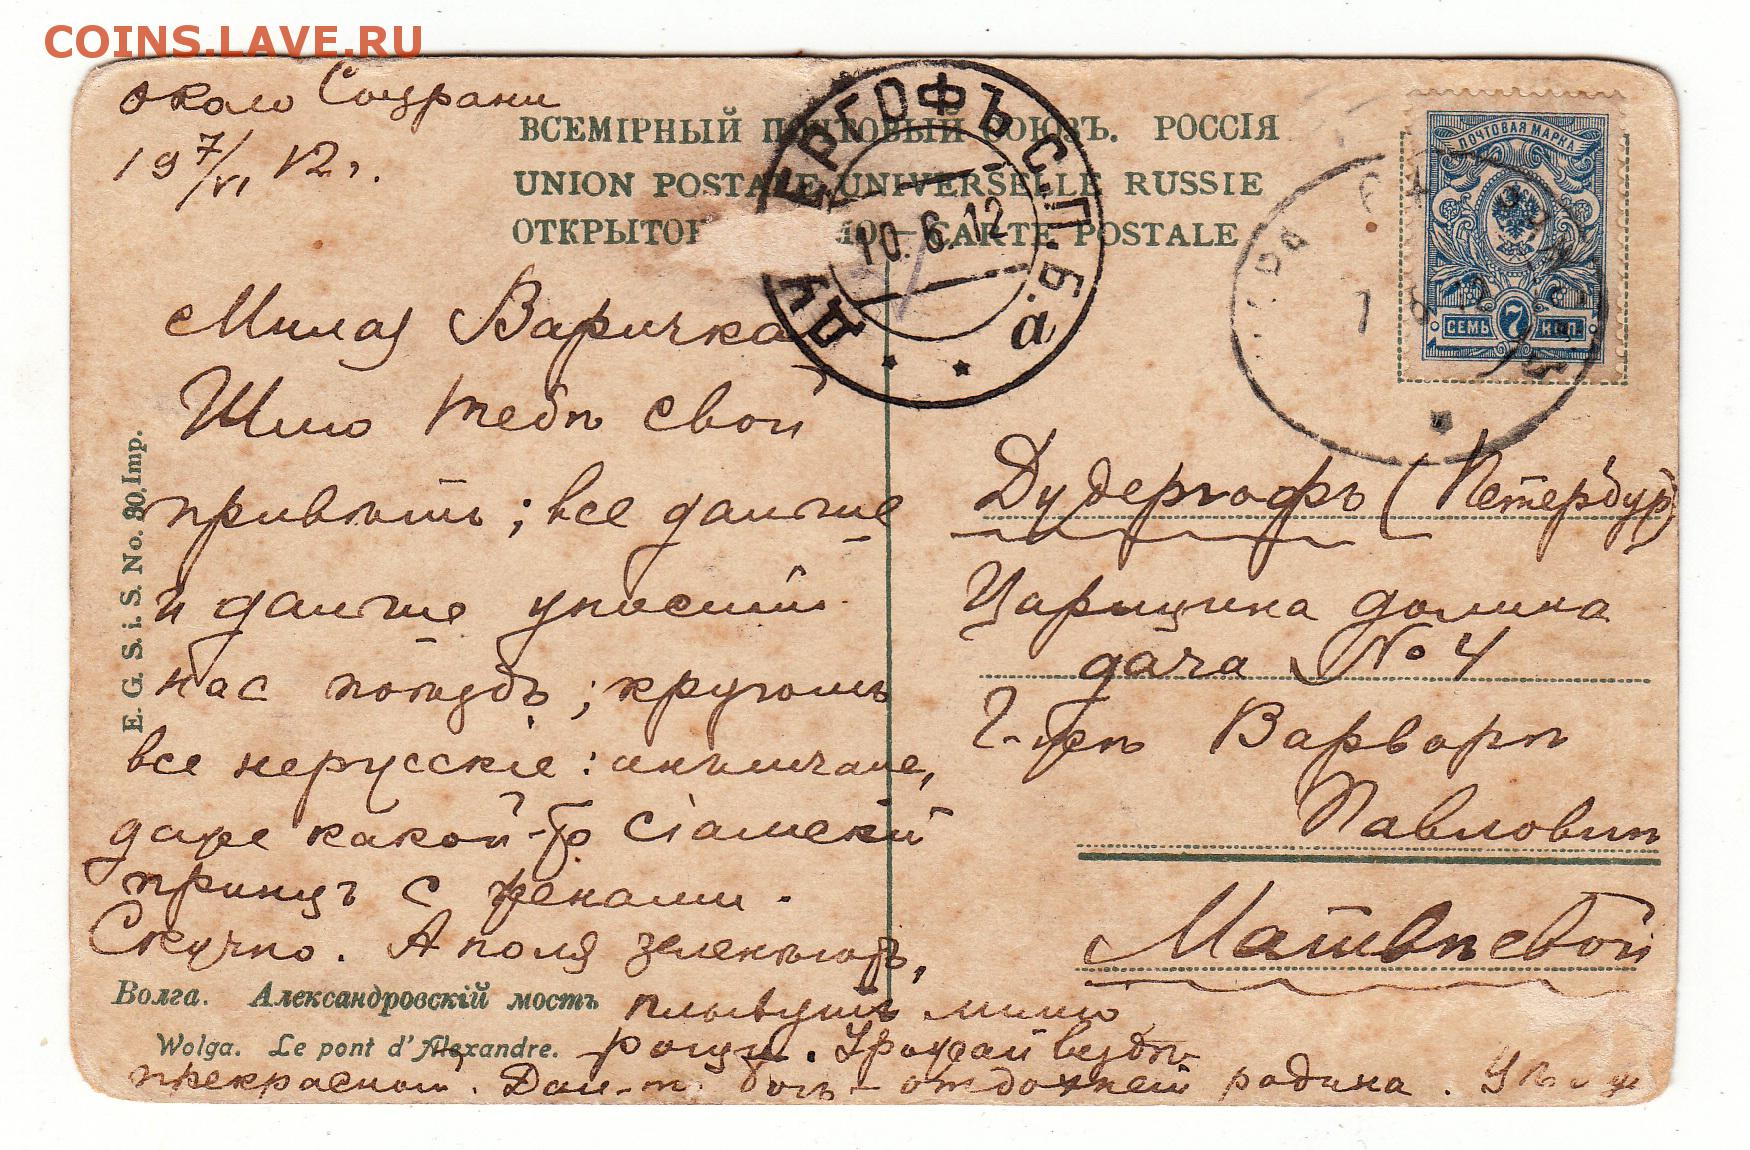 COINS.LAVE.RU
около Сызрани
19 7/VI 12 г.
ВСЕМІРНЫЙ ПОЧТОВЫЙ СОЮЗЪ. РОССІЯ
UNION POSTALE UNIVERSELLE RUSSIE
ОТКРЫТО МО — CARTE POSTALE
ДУДЕРГОФЪ С.П.Б.
10. 6. 12
а
ПОЧТОВАЯ МАРКА
СЕМЬ 7 КОП.
Милая Варичка
Шлю тебѣ свой
привѣтъ; все дальше
и дальше уноситъ
нас поѣздъ; кругомъ
все нерусскіе: англичане,
даже какой-то сіамскій
принцъ с женами.
Скучно. А поля зеленѣютъ,
плывутъ мимо
рощи. Урожай вездѣ
прекрасный. Дай-то богъ — отдохнетъ родина.
Дудергофъ (Петербург)
Царицина долина
дача № 4
Г-жѣ Варварѣ
Павловнѣ
Матвѣевой
E. G. S. i. S. No. 80. Imp.
Волга. Александровскій мостъ
Wolga. Le pont d'Alexandre.